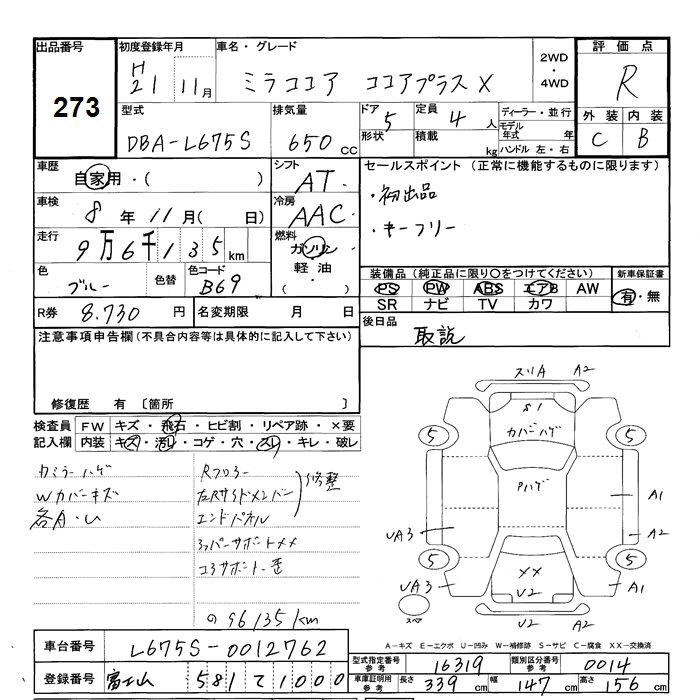 出品番号 273
初度登録年月 H21 11月
車名・グレード ミラココア ココアプラスX
2WD・4WD
評価点 R
型式 DBA-L675S
排気量 650cc
ドア 5 形状
定員 4人 積載 kg
ディーラー・並行
モデル年式 年
ハンドル 左・右
外装 C 内装 B
車歴 自家用・( )
シフト AT
セールスポイント(正常に機能するものに限ります)
・初出品
・キーフリー
車検 8年11月( 日)
冷房 AAC
走行 9万6千135km
燃料 ガソリン 軽油・( )
色 ブルー 色替 色コード B69
装備品(純正品に限り○をつけてください)
PS PW ABS エアB AW
SR ナビ TV カワ
新車保証書 有・無
R券 8.730円
名変期限 月 日
後日品 取説
注意事項申告欄(不具合内容等は具体的に記入して下さい)
修復歴 有 〔箇所 〕
検査員記入欄
FW キズ・飛石・ヒビ割・リペア跡・×要
内装 キズ・汚れ・コゲ・穴・スレ・キレ・破レ
カミラーハゲ
Wカバーキズ
各A・U
Rフロアー
左Rサイドメンバー
エンドパネル
修整
コアサポート歪
の96135km
スリA A2
S1
カバーハゲ
Pハゲ
5 5 5 5
A1
A2
UA3
UA3
A1
XX
U2
U2 A2
スペア
A-キズ E-エクボ U-凹み W-補修跡 S-サビ C-腐食 XX-交換済
車台番号 L675S-0012762
登録番号 富士山 581 て 1000
型式指定番号 参考 16319
類別区分番号 参考 0014
車庫証明用 参考 長さ 339cm 幅 147cm 高さ 156cm